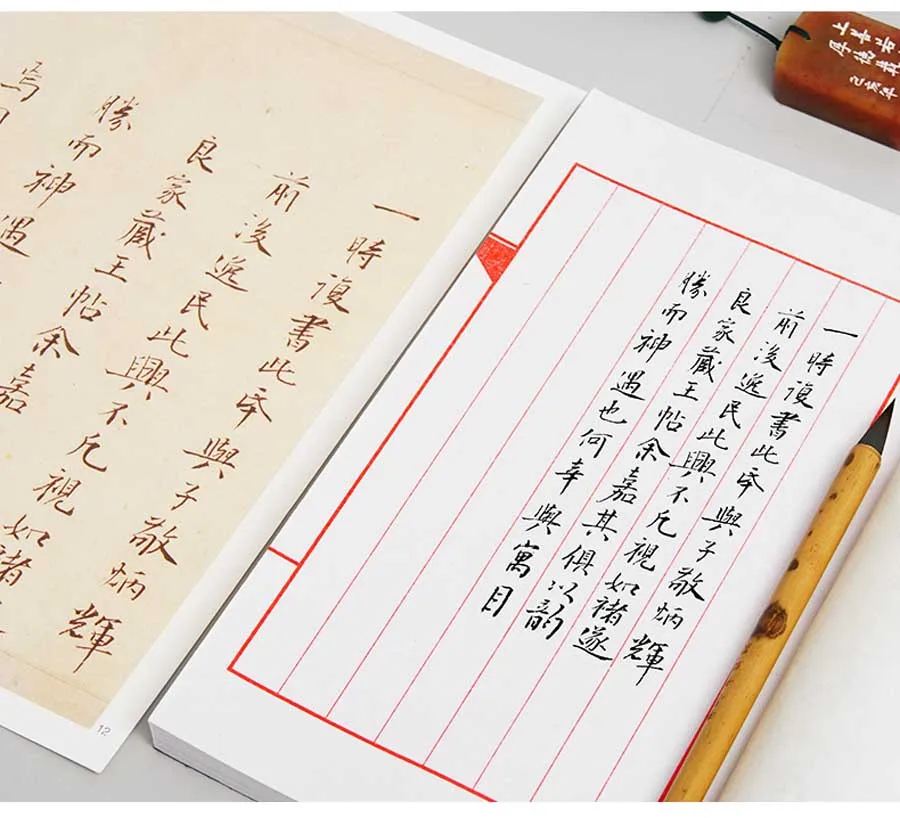 一時復書此夲與子敬炳輝
前後逸民此興不凡視如褚
良家藏王帖余嘉
勝而神遇
12
一時復書此夲與子敬炳輝
前後逸民此興不凡視如褚遂
良家藏王帖余嘉其俱以韻
勝而神遇也何幸與寓目
上善若
厚德載
己亥年